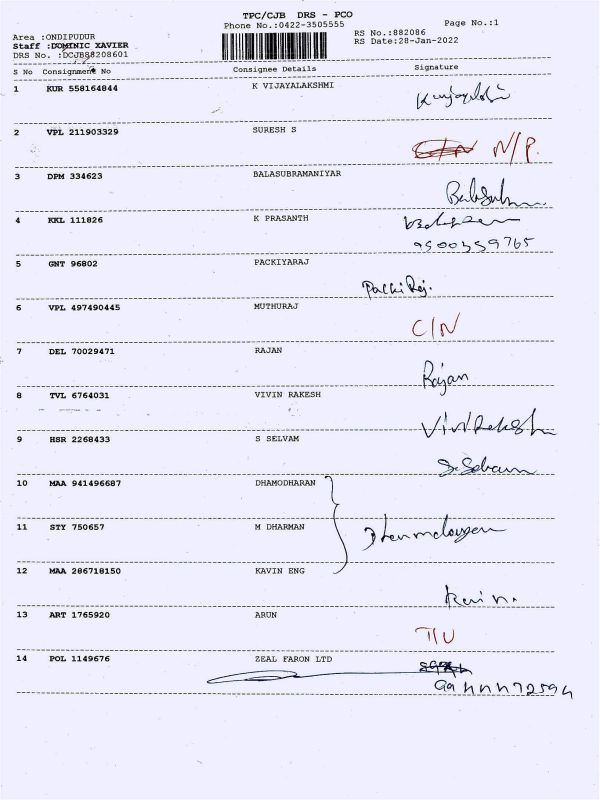 TPC/CJB DRS - PCO
Phone No.:0422-3505555
Page No.:1
Area :ONDIPUDUR
RS No.:882086
Staff :DOMINIC XAVIER
RS Date:28-Jan-2022
DRS No. :DCJB88208601
S No Consignment No Consignee Details Signature
1 KUR 558164844 K VIJAYALAKSHMI
2 VPL 211903329 SURESH S N/P.
3 DPM 334623 BALASUBRAMANIYAR
4 KKL 111826 K PRASANTH
9500359765
5 GNT 96802 PACKIYARAJ
PackiRaj.
6 VPL 497490445 MUTHURAJ C/N
7 DEL 70029471 RAJAN
Rajan
8 TVL 6764031 VIVIN RAKESH
9 HSR 2268433 S SELVAM
10 MAA 941496687 DHAMODHARAN
11 STY 750657 M DHARMAN
12 MAA 286718150 KAVIN ENG
13 ART 1765920 ARUN
T/U
14 POL 1149676 ZEAL FARON LTD